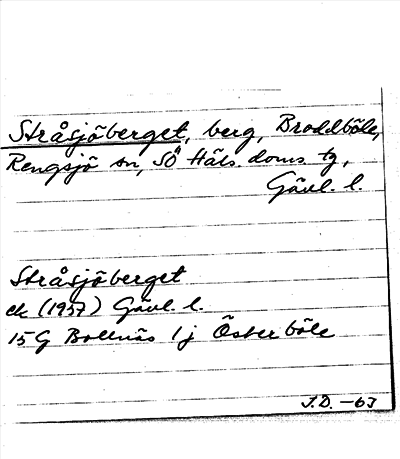 Stråsjöberget, berg, Broddböle,
Rengsjö sn, SÖ Häls. doms. tg,
Gävl. l.
Stråsjöberget
ek (1957) Gävl. l.
15G Bollnäs 1j Österböle
J.D. -63